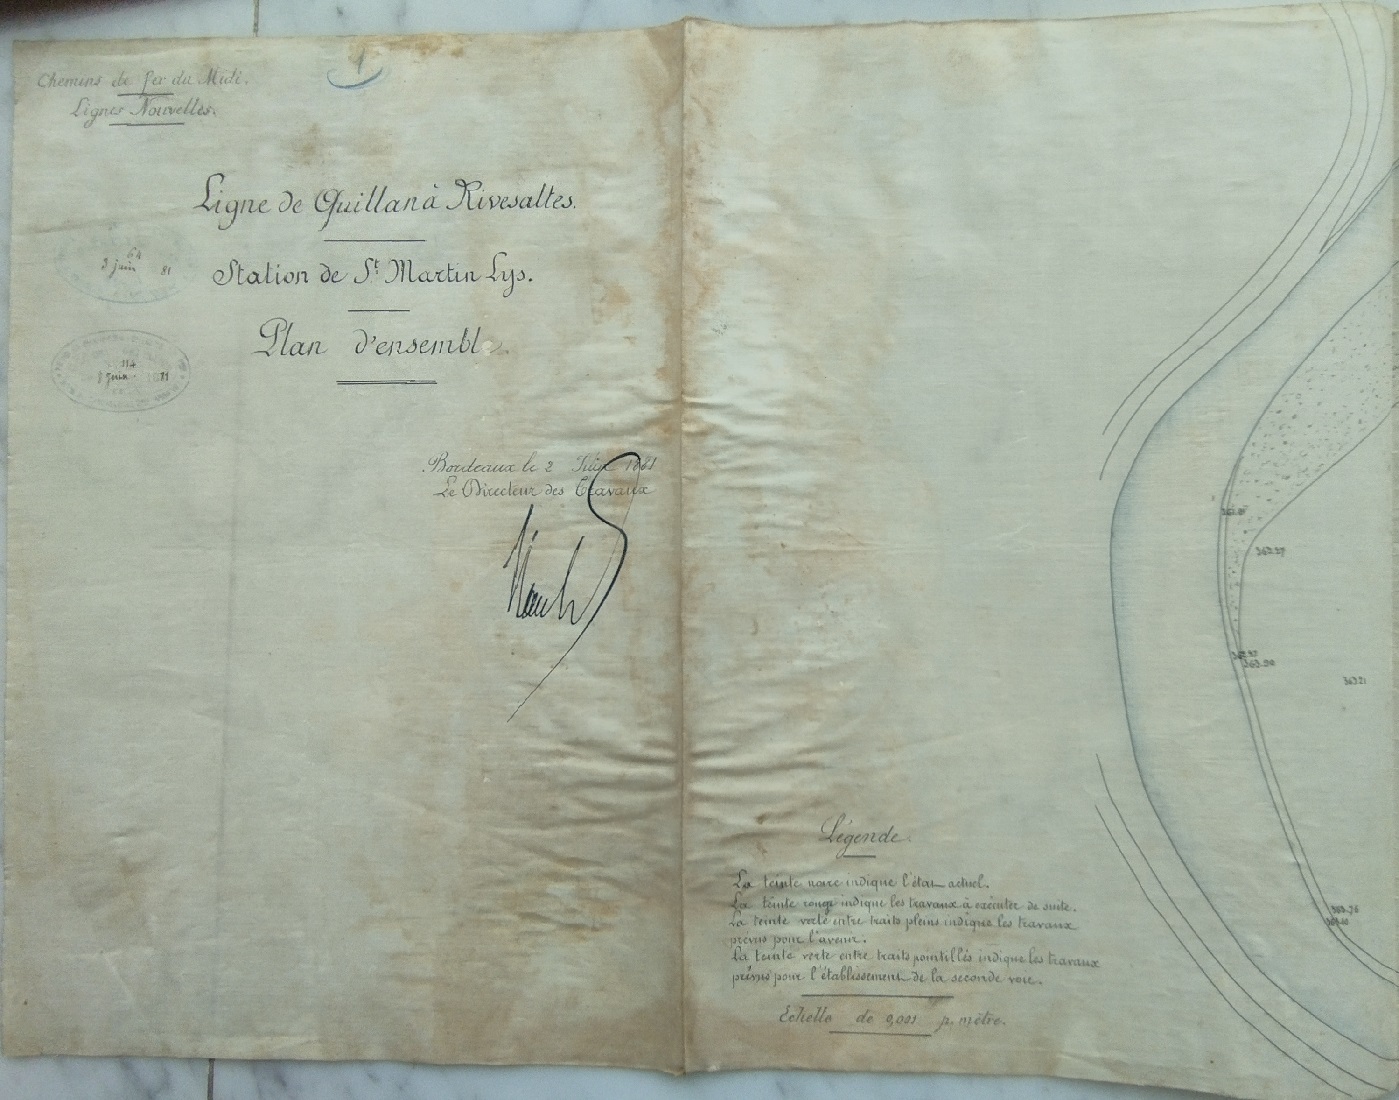 Chemins de fer du Midi.
Lignes Nouvelles.
1
Ligne de Quillan à Rivesaltes.
Station de St Martin Lys.
Plan d'ensemble.
64
3 juin 81
114
juin
Bordeaux le 2 Juin 1881
Le Directeur des Travaux
362.97
363.90
363.21
Légende.
La teinte noire indique l'état actuel.
La teinte rouge indique les travaux à exécuter de suite.
La teinte verte entre traits pleins indique les travaux
prévus pour l'avenir.
La teinte verte entre traits pointillés indique les travaux
prévus pour l'établissement de la seconde voie.
Echelle de 0,001 p. mètre.